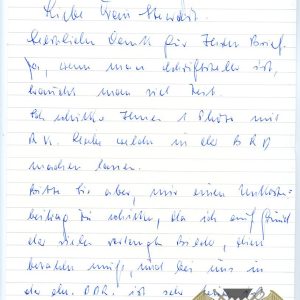 Liebe Frau Stewart.
herzlichen Dank für Ihren Brief.
Ja, wenn man Schriftsteller ist,
braucht man viel Zeit.
Ich schicke Ihnen 1 Photo mit
in der BRD
machen lassen.
Bitte Sie aber, mir einen Unkosten-
beitrag zu schicken, da ich auf Grund
der vielen verlangten Bilder, dies
bezahlen muß, und bei uns in
der DDR ist sehr